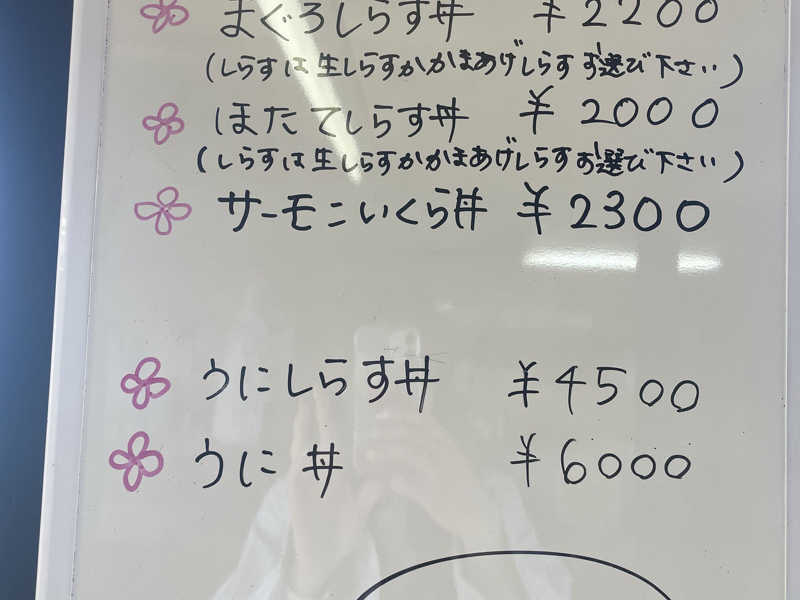 まぐろしらす丼 ¥2200
(しらすは生しらすかかまあげしらすお選び下さい)
ほたてしらす丼 ¥2000
(しらすは生しらすかかまあげしらすお選び下さい)
サーモンいくら丼 ¥2300
うにしらす丼 ¥4500
うに丼 ¥6000